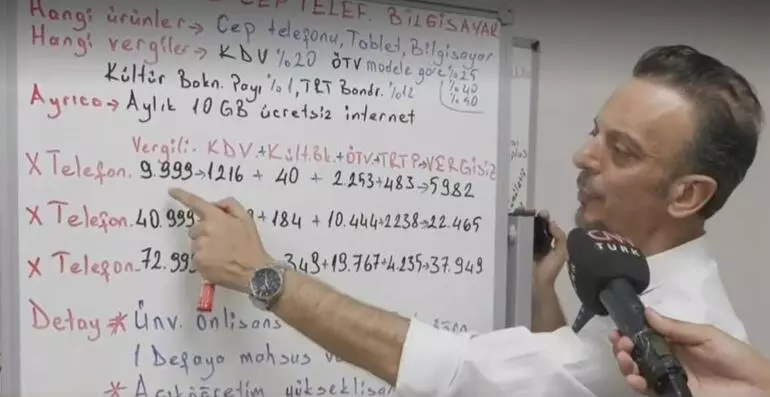 CEP TELEF. BİLGİSAYAR
Hangi ürünler → Cep telefonu, Tablet, Bilgisayar
Hangi vergiler → KDV %20 ÖTV modele göre %25
%40
%50
Kültür Bakn. Payı %1, TRT Bandr. %12
Ayrıca → Aylık 10 GB ücretsiz internet
Vergili. KDV + Kült.Bk. + ÖTV + TRT P → VERGİSİZ
X Telefon. 9.999 → 1216 + 40 + 2.253 + 483 → 5982
X Telefon. 40.999 + 184 + 10.444 + 2238 → 22.465
X Telefon. 72.999 349 + 19.767 + 4.235 → 37.949
Detay * Ünv. önlisans
1 Defaya mahsus
* Açıköğretim
CNN
TÜRK